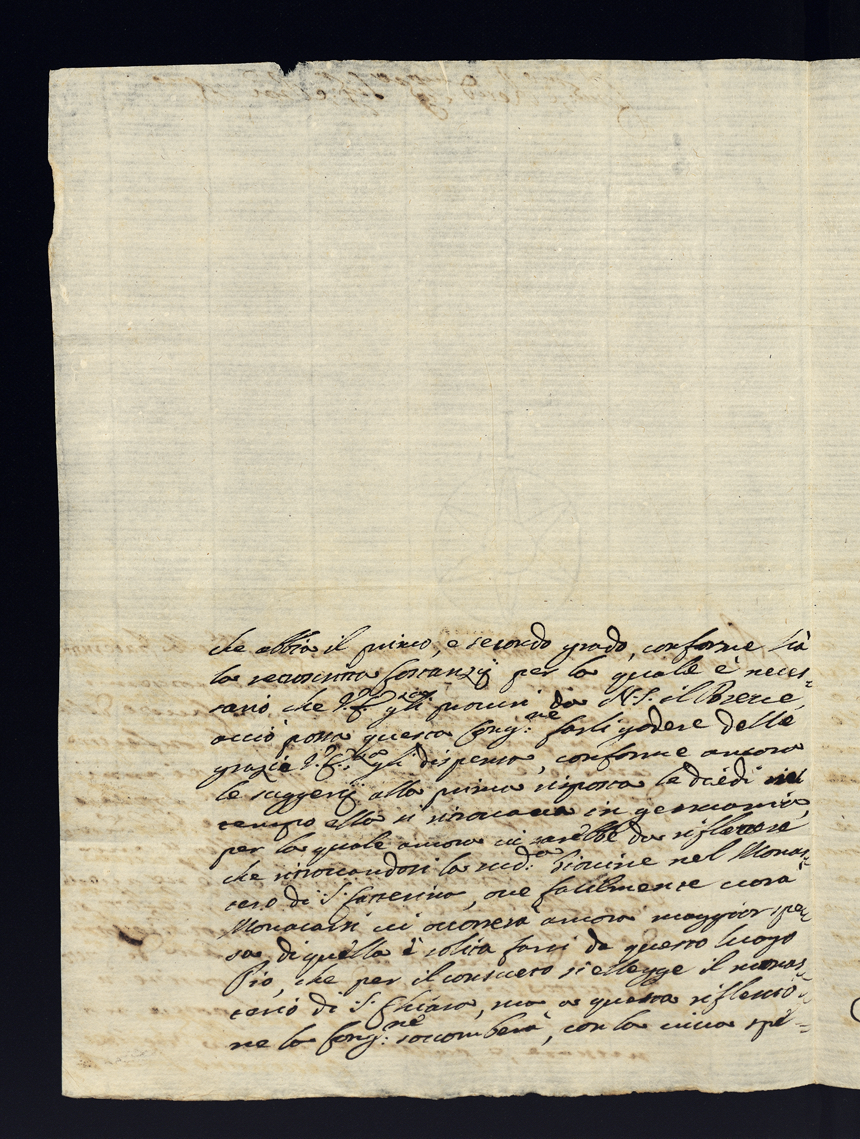 che abbia il primo, e secondo grado, conforme hà
la per la quale è neces-
sario che V.E. gli procuri da N.S. il Breve,
acciò possa questa Cong:ne farli godere delle
grazie V.E. gli dispensa, conforme ancora
le suggerij alla prima risposta le diedi nel
tempo ella si ritrovava in
per la quale ancora vi sarebbe da riflettere
che ritrovandosi la sud:a Giovine nel Monas-
tero di S. Catterina, ove facilmente vorà
Monacarsi vi occorrerà ancora maggior spe-
sa, di quella è solita farsi da questo luogo
Pio, che per il consueto si elegge il monas-
terio di S. Chiara, ma a questa riflessio-
ne la Cong:ne soccomberà, con la vicva spe-